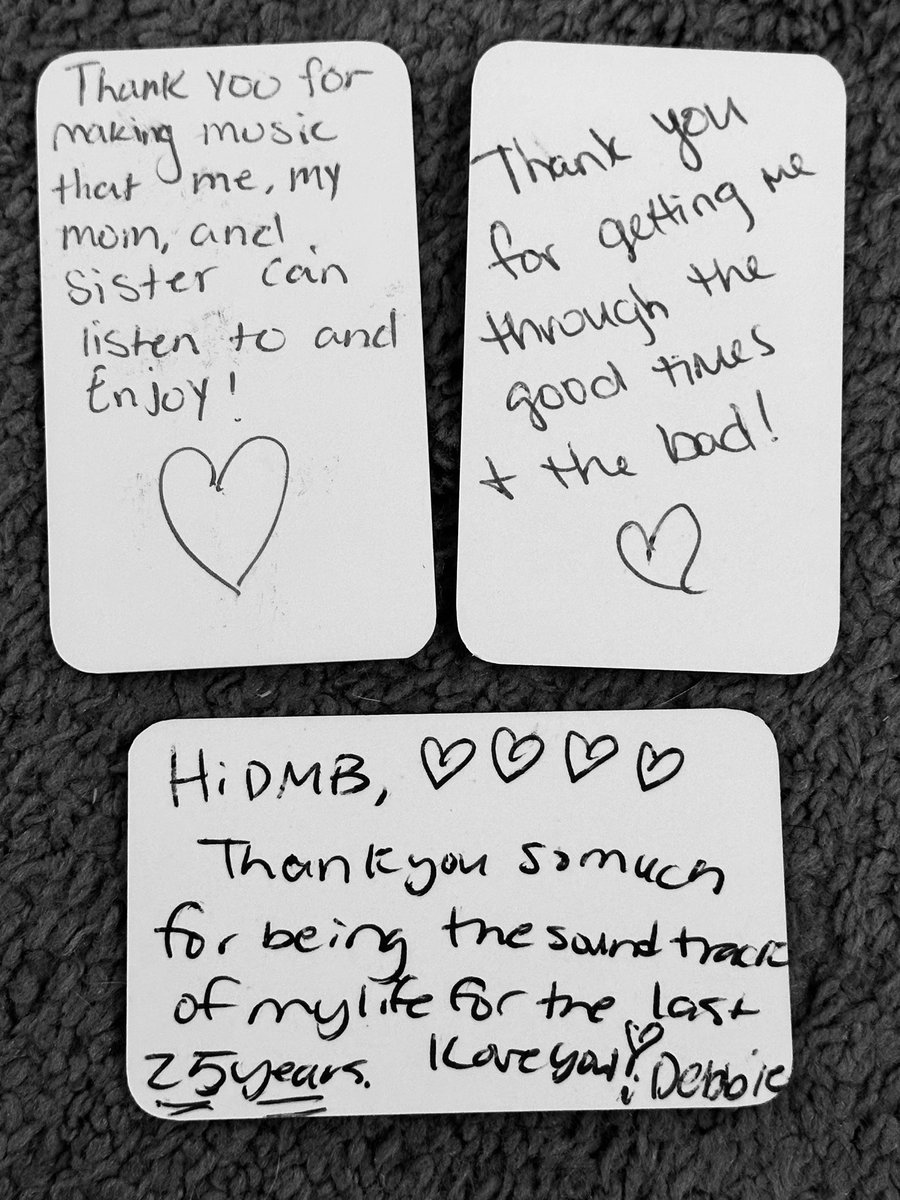 Thank you for
making music
that me, my
mom, and
sister can
listen to and
Enjoy!
Thank you
for getting me
through the
good times
+ the bad!
Hi DMB,
Thank you so much
for being the soundtrack
of my life for the last
25 years. I love you! Debbie